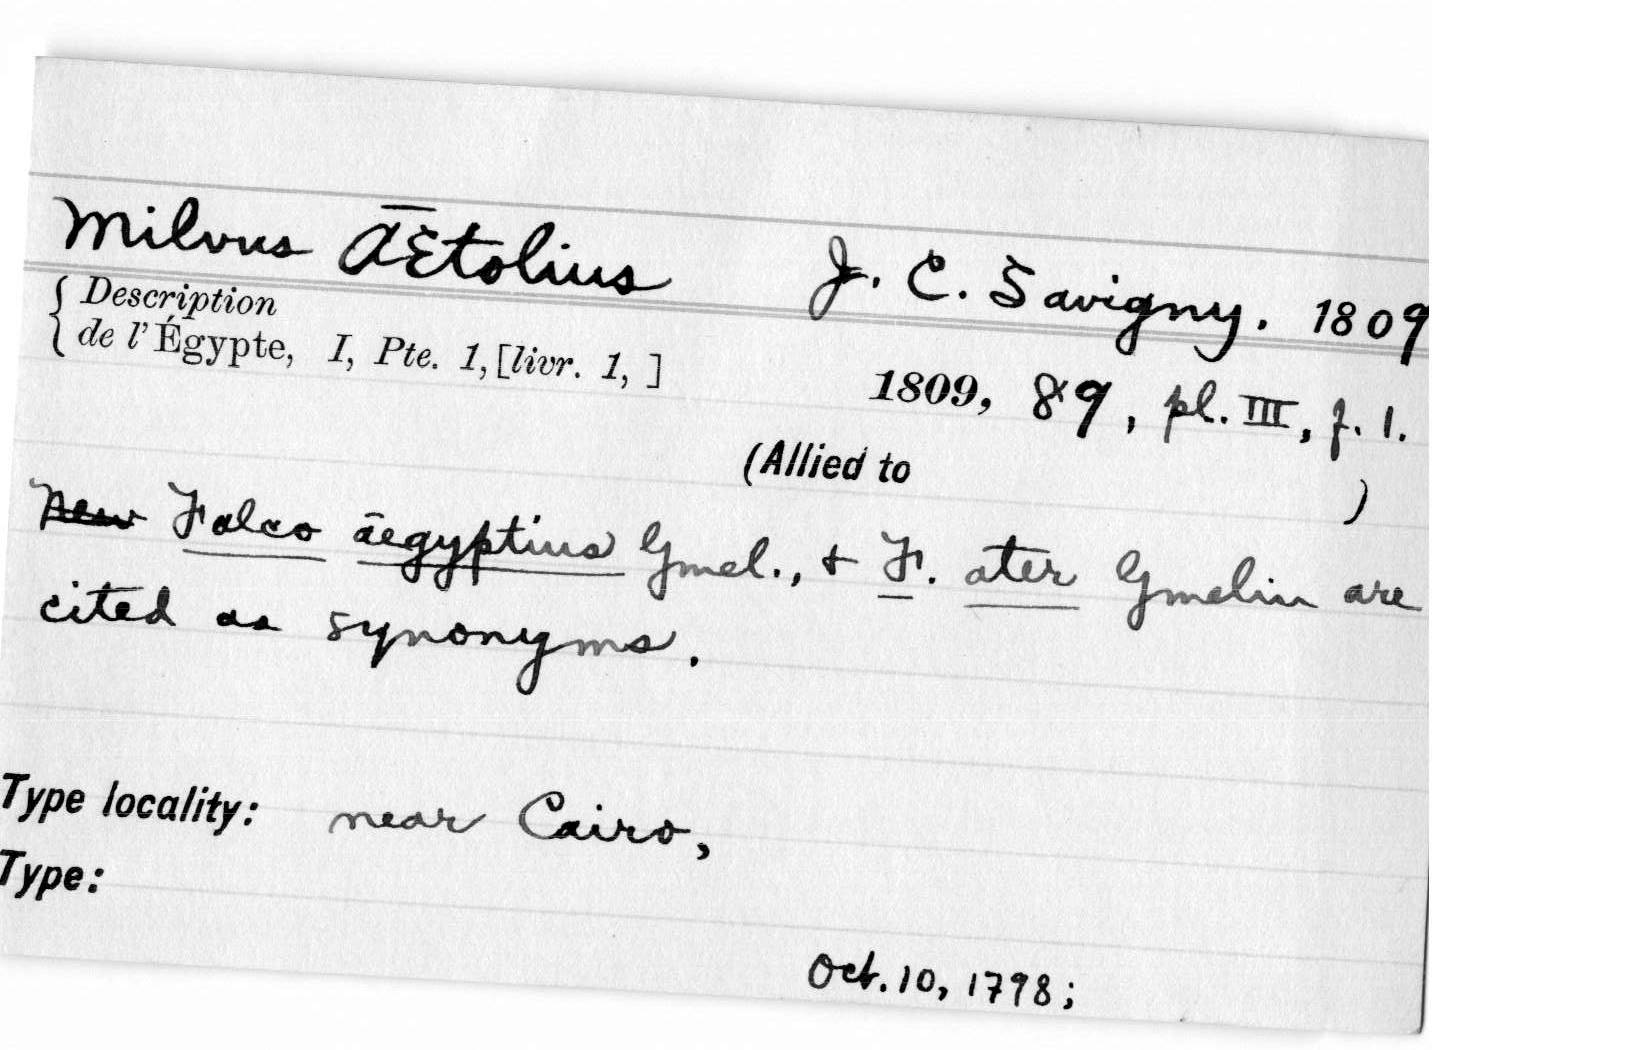 Milvus Ætolius J. C. Savigny. 1809
{ Description
de l'Égypte, I, Pte. 1, [livr. 1, ] 1809, 89, pl. III, f. 1.
(Allied to )
New Falco ægyptius Gmel., & F. ater Gmelin are
cited as synonyms.
Type locality: near Cairo,
Type:
Oct. 10, 1798;